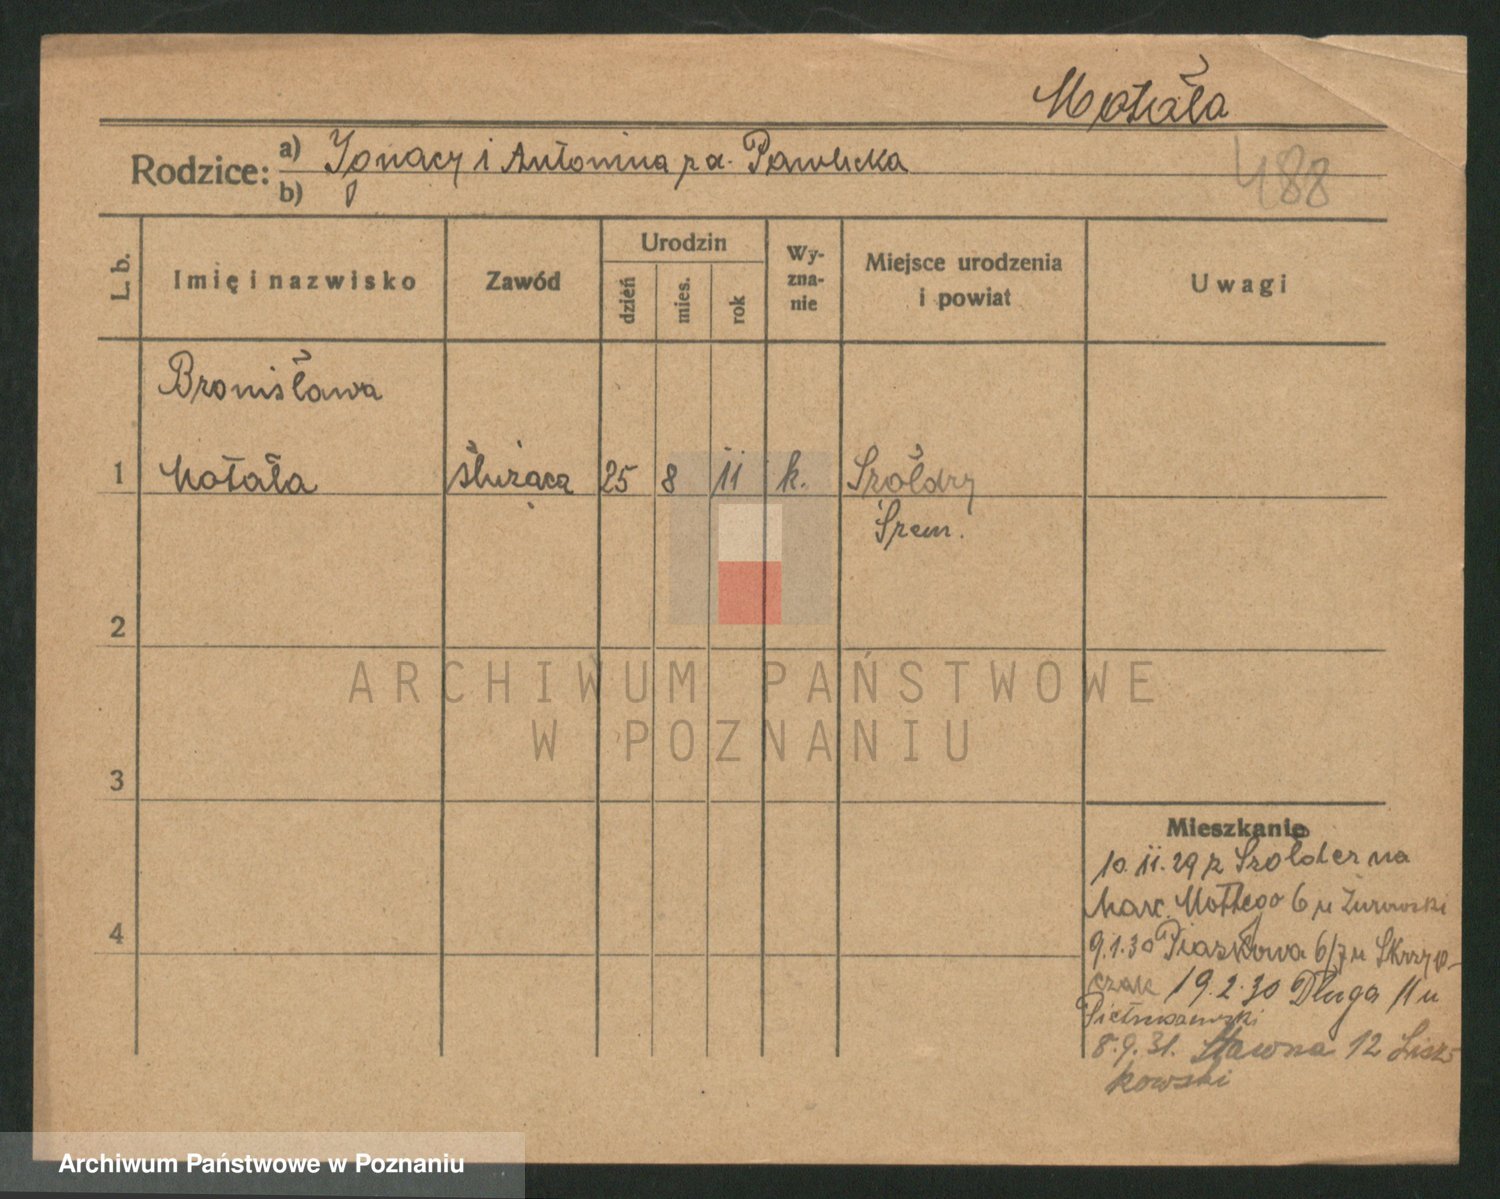 Motała
Rodzice: a) Ignacy i Antonina z d. Pawlicka
b)
488
L. b.
Imię i nazwisko
Zawód
Urodzin
dzień
mies.
rok
Wy-
zna-
nie
Miejsce urodzenia
i powiat
Uwagi
Bronisława
1 Motała służąca 25 8 11 k. Szołdry
Śrem.
2
3
4
Mieszkanie
10.11.29 z Szołder na
Marc. Mottego 6 u Żurowski
9.1.30 Piaskowa 6/7 u Skrzyp-
czak 19.2.30 Długa 11 u
8.9.31. Stawna 12 Lisz-
kowski
ARCHIWUM PAŃSTWOWE
W POZNANIU
Archiwum Państwowe w Poznaniu